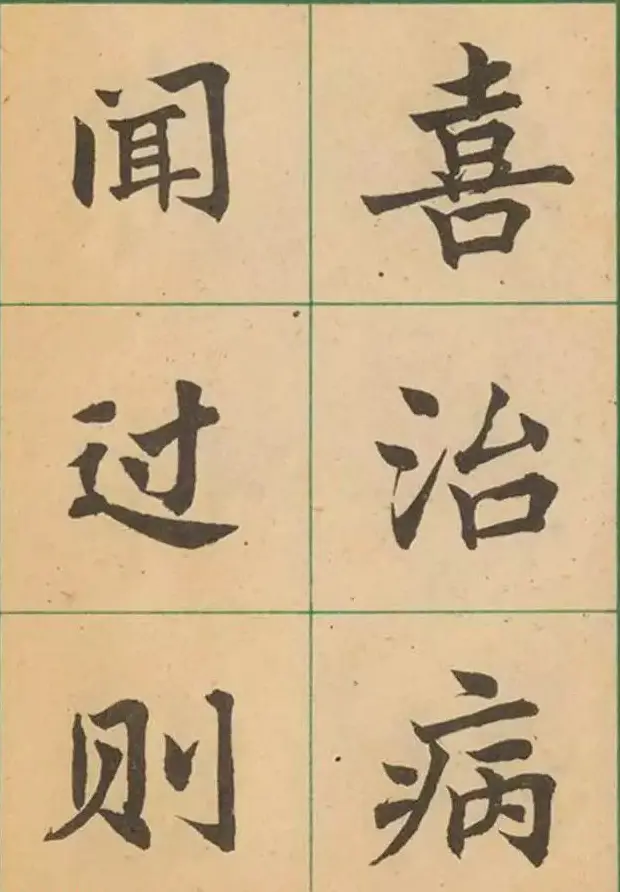 闻过则
喜治病